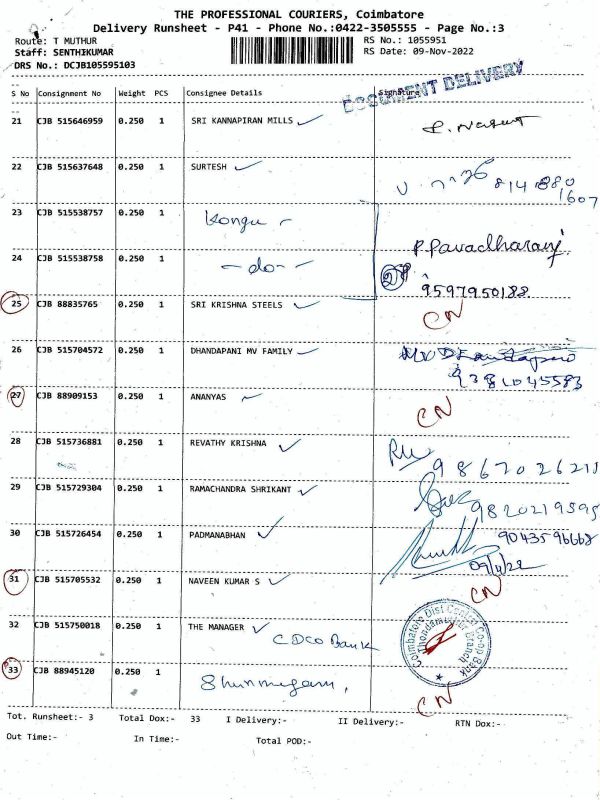 THE PROFESSIONAL COURIERS, Coimbatore
Delivery Runsheet - P41 - Phone No.:0422-3505555 - Page No.:3
Route: T MUTHUR
RS No.: 1055951
Staff: SENTHIKUMAR
RS Date: 09-Nov-2022
DRS No.: DCJB105595103
DOCUMENT DELIVERY
S No Consignment No Weight PCS Consignee Details Signature
21 CJB 515646959 0.250 1 SRI KANNAPIRAN MILLS
22 CJB 515637648 0.250 1 SURTESH
23 CJB 515538757 0.250 1 Kongu
24 CJB 515538758 0.250 1 -do- P. Pavadharani
9597950188
25 CJB 88835765 0.250 1 SRI KRISHNA STEELS CN
26 CJB 515704572 0.250 1 DHANDAPANI MV FAMILY
27 CJB 88909153 0.250 1 ANANYAS CN
28 CJB 515736881 0.250 1 REVATHY KRISHNA
29 CJB 515729304 0.250 1 RAMACHANDRA SHRIKANT 9820219595
30 CJB 515726454 0.250 1 PADMANABHAN 9043596668
09/11/22
31 CJB 515705532 0.250 1 NAVEEN KUMAR S CN
32 CJB 515750018 0.250 1 THE MANAGER CDCO Bank
Coimbatore Dist Central Co-op Bank
Branch
33 CJB 88945120 0.250 1 Shunmugam, CN
Tot. Runsheet:- 3 Total Dox:- 33 I Delivery:- II Delivery:- RTN Dox:-
Out Time:- In Time:- Total POD:-